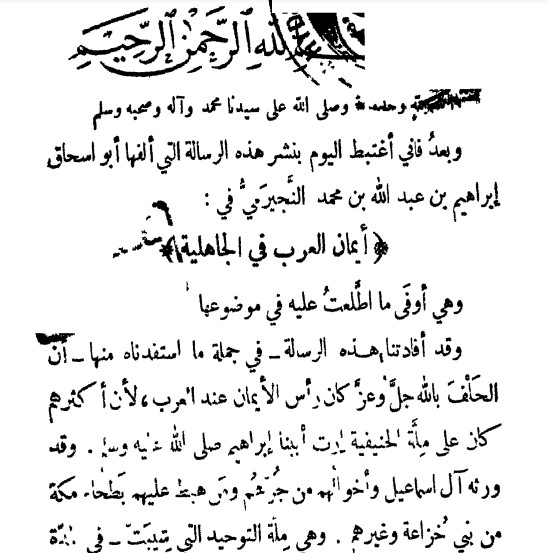 الله الرَّحمٰنِ الرَّحِيمِ
وحده وصلى الله على سيدنا محمد وآله وصحبه وسلم
وبعدُ فاني أغتبط اليوم بنشر هذه الرسالة التي ألفها أبو اسحاق
إبراهيم بن عبد الله بن محمد النَّجيرَميُّ في :
﴿ أيمان العرب في الجاهلية ﴾
وهي أوفَى ما اطَّلعتُ عليه في موضوعها
وقد أفادتنا هذه الرسالة ــ في جملة ما استفدناه منها ــ أنّ
الحَلْفَ بالله جلَّ وعزَّ كان رأس الأيمان عند العرب، لأن أكثرهم
كان على مِلَّة الحنيفية إرث أبينا إبراهيم صلى الله عليه وسلم . وقد
ورثه آل اسماعيل وأخوالهم من جُرْهُم ومَن هبط عليهم بَطحاء مكة
من بني خُزاعة وغيرهم . وهي ملّة التوحيد التي ــ في